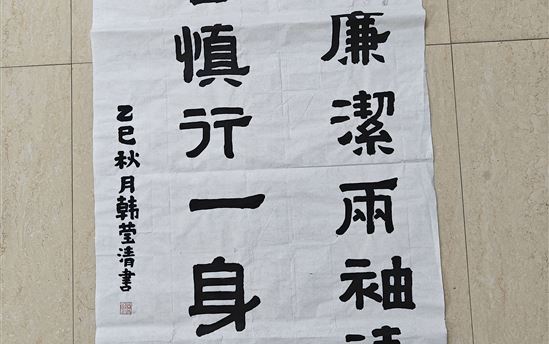 廉潔兩袖
慎行一身
乙巳秋月韩莹清書